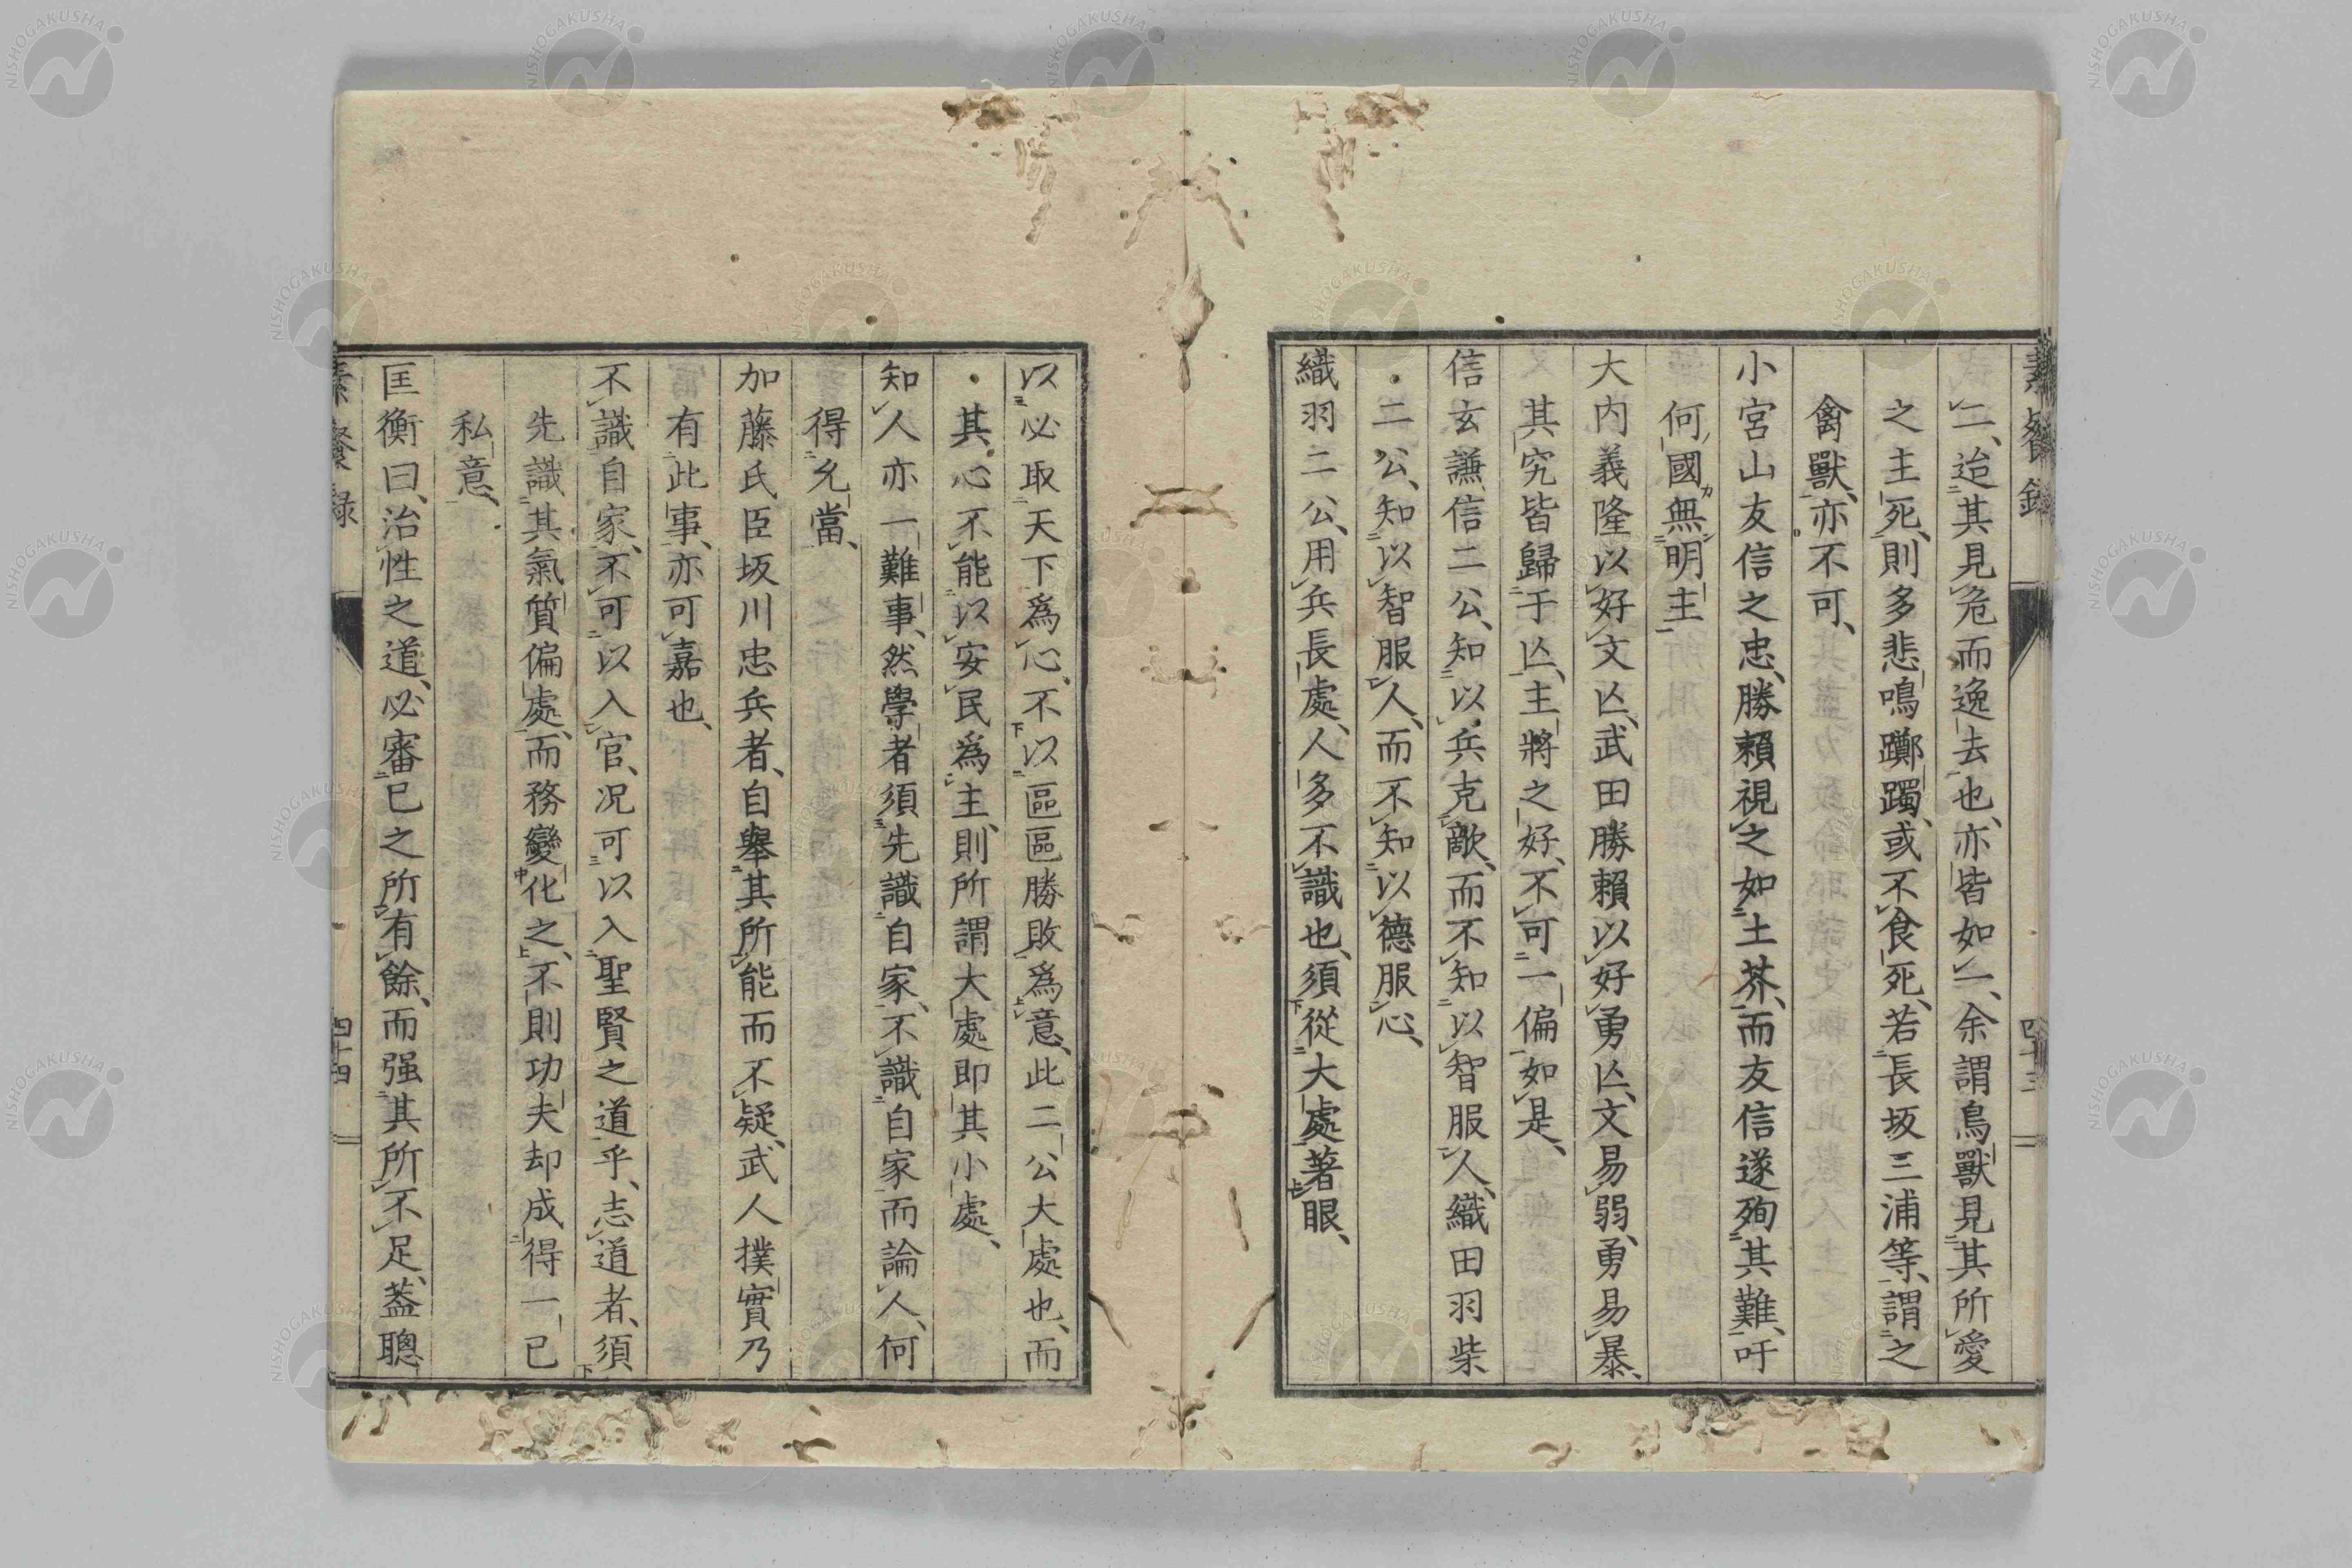 二、迨其見危而逸去也、亦皆如一、余謂鳥獸見其所愛
之主死、則多悲鳴躑躅、或不食死、若長坂三浦等、謂之
禽獸、亦不可、
小宮山友信之忠、勝賴視之如土芥、而友信遂殉其難、吁
何國無明主
大内義隆以好文亾、武田勝賴以好勇亾、文易弱、勇易暴、
其究皆歸于亾、主將之好、不可一偏如是、
信玄謙信二公、知以兵克敵、而不知以智服人、織田羽柴
二公、知以智服人、而不知以德服心、
織羽二公、用兵長處、人多不識也、須從大處著眼、
素餐錄
四十三
以必取天下爲心、不以區區勝敗爲意、此二公大處也、而
其心不能以安民爲主、則所謂大處即其小處、
知人亦一難事、然學者須先識自家、不識自家而論人、何
得允當、
加藤氏臣坂川忠兵者、自舉其所能而不疑、武人撲實乃
有此事、亦可嘉也、
不識自家、不可以入官、况可以入聖賢之道乎、志道者、須
先識其氣質偏處、而務變化之、不則功夫却成得一己
私意、
匡衡曰、治性之道、必審已之所有餘、而强其所不足、蓋聰
素餐錄
四十四
NISHOGAKUSHA